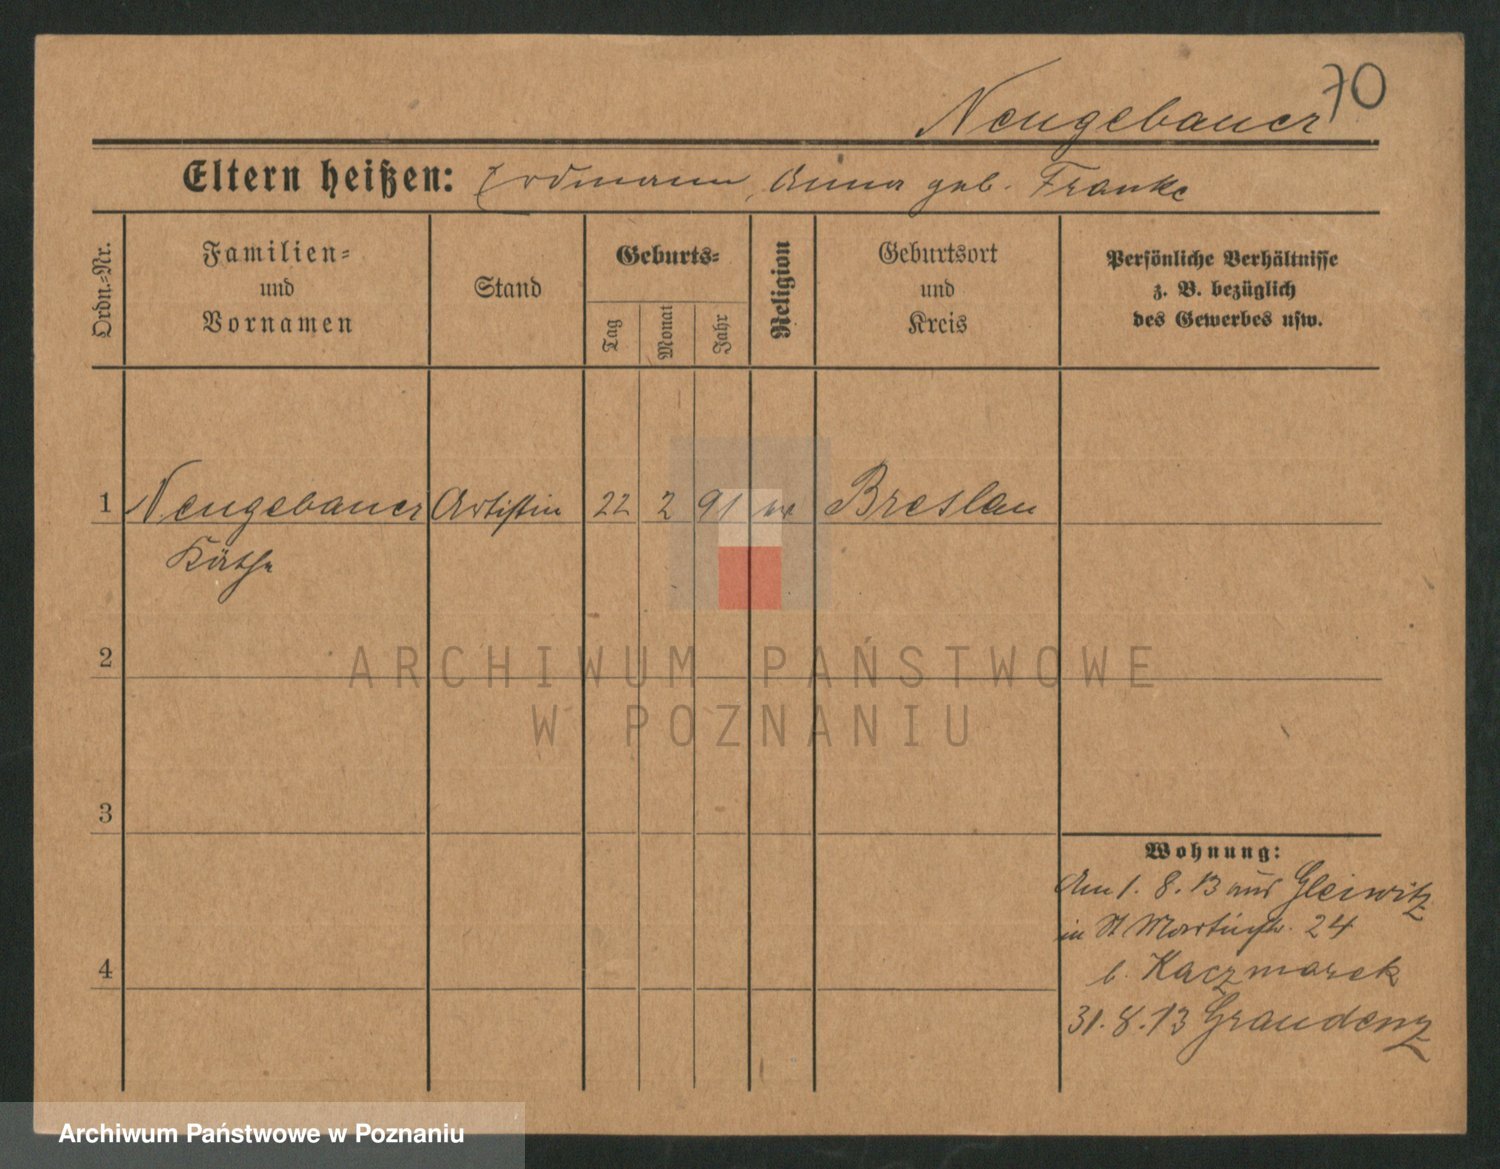 70
Neugebauer
Eltern heißen: Erdmann, Anna geb. Franke
Ordn.=Nr.
Familien=
und
Vornamen
Stand
Geburts=
Tag
Monat
Jahr
Religion
Geburtsort
und
Kreis
Persönliche Verhältnisse
z. B. bezüglich
des Gewerbes usw.
1 Neugebauer Artistin 22 2 91 Breslau
Käthe
2
ARCHIWUM PAŃSTWOWE
W POZNANIU
3
Wohnung:
Am 1. 8. 13 aus Gleiwitz
in St Martinstr. 24
b. Kaczmarek
4
31. 8. 13 Graudenz
Archiwum Państwowe w Poznaniu